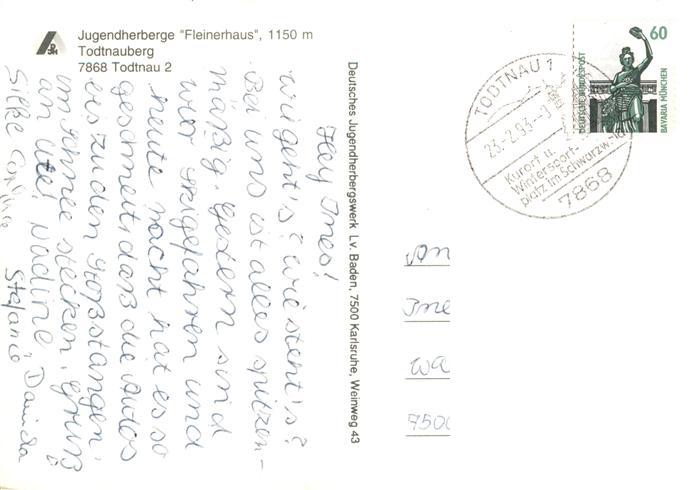 Jugendherberge "Fleinerhaus", 1150 m
Todtnauberg
7868 Todtnau 2
DJH
Hey Ines!
wie geht's? wie steht's?
Bei uns ist alles spitzen-
mäßig. Gestern sind
wir skigefahren und
heute nacht hat es so
geschneit, daß die Autos
bis zu den Stoßstangen
im Schnee stecken. Gruß
an Ute! Nadine
Silke
Stefanie Daniela
Deutsches Jugendherbergswerk Lv. Baden, 7500 Karlsruhe, Weinweg 43
TODTNAU 1
23.-2.93.-
Kurort u.
Wintersport-
platz im Schwarzwald
7868
60
DEUTSCHE BUNDESPOST
BAVARIA MÜNCHEN
An
Ine
Wa
750